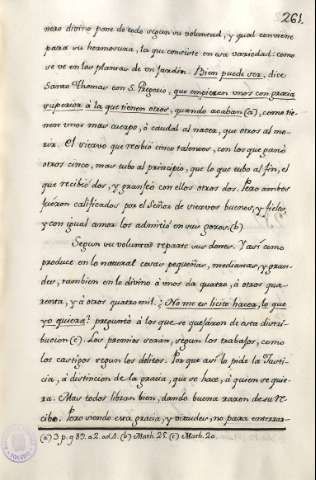 261.
nero divino pone de todo segun su voluntad, y qual conviene
para su hermosura, la que consiste en esa variedad: como
se ve en las plantas de un Jardin. Bien puede ser, dice
Santo Thomas con S. Gregorio, que empiezen unos con gracia
superior à la que tienen otros, quando acaban (a), como tie-
nen unos mas cuerpo, ò caudal al nacer, que otros al mo-
rir. El siervo que recibiò cinco talentos, con los que ganò
otros cinco, mas tubo al principio, que lo que tubo al fin, el
que recibiò dos, y grangeò con ellos otros dos. Pero ambos
fueron calificados por el Señor de siervos buenos, y fieles,
y con igual amor los admitiò en sus gozos (b)
Segun su voluntad reparte sus dones. Y asi como
produce en lo natural cosas pequeñas, medianas, y gran-
des, tambien en lo divino à unos da quatro, à otros qua-
renta, y à otros quatro mil. ¿No me es licito hacer, lo que
yo quiera? preguntò à los que se quejaron de esta distri-
bucion (c). Los premios seràn, segun los trabajos, como
los castigos segun los delitos. Por que asi lo pide la Justi-
cia, à distincion de la gracia, que se hace, à quien se quie-
ra. Mas todos libran bien, dando buena razon de su re-
cibo. Pero siendo esta gracia, y virtudes, no para enterrar-
(a) 3. p. q. 89. a. 2. ad. (b) Math. 25. (c) Math. 20.